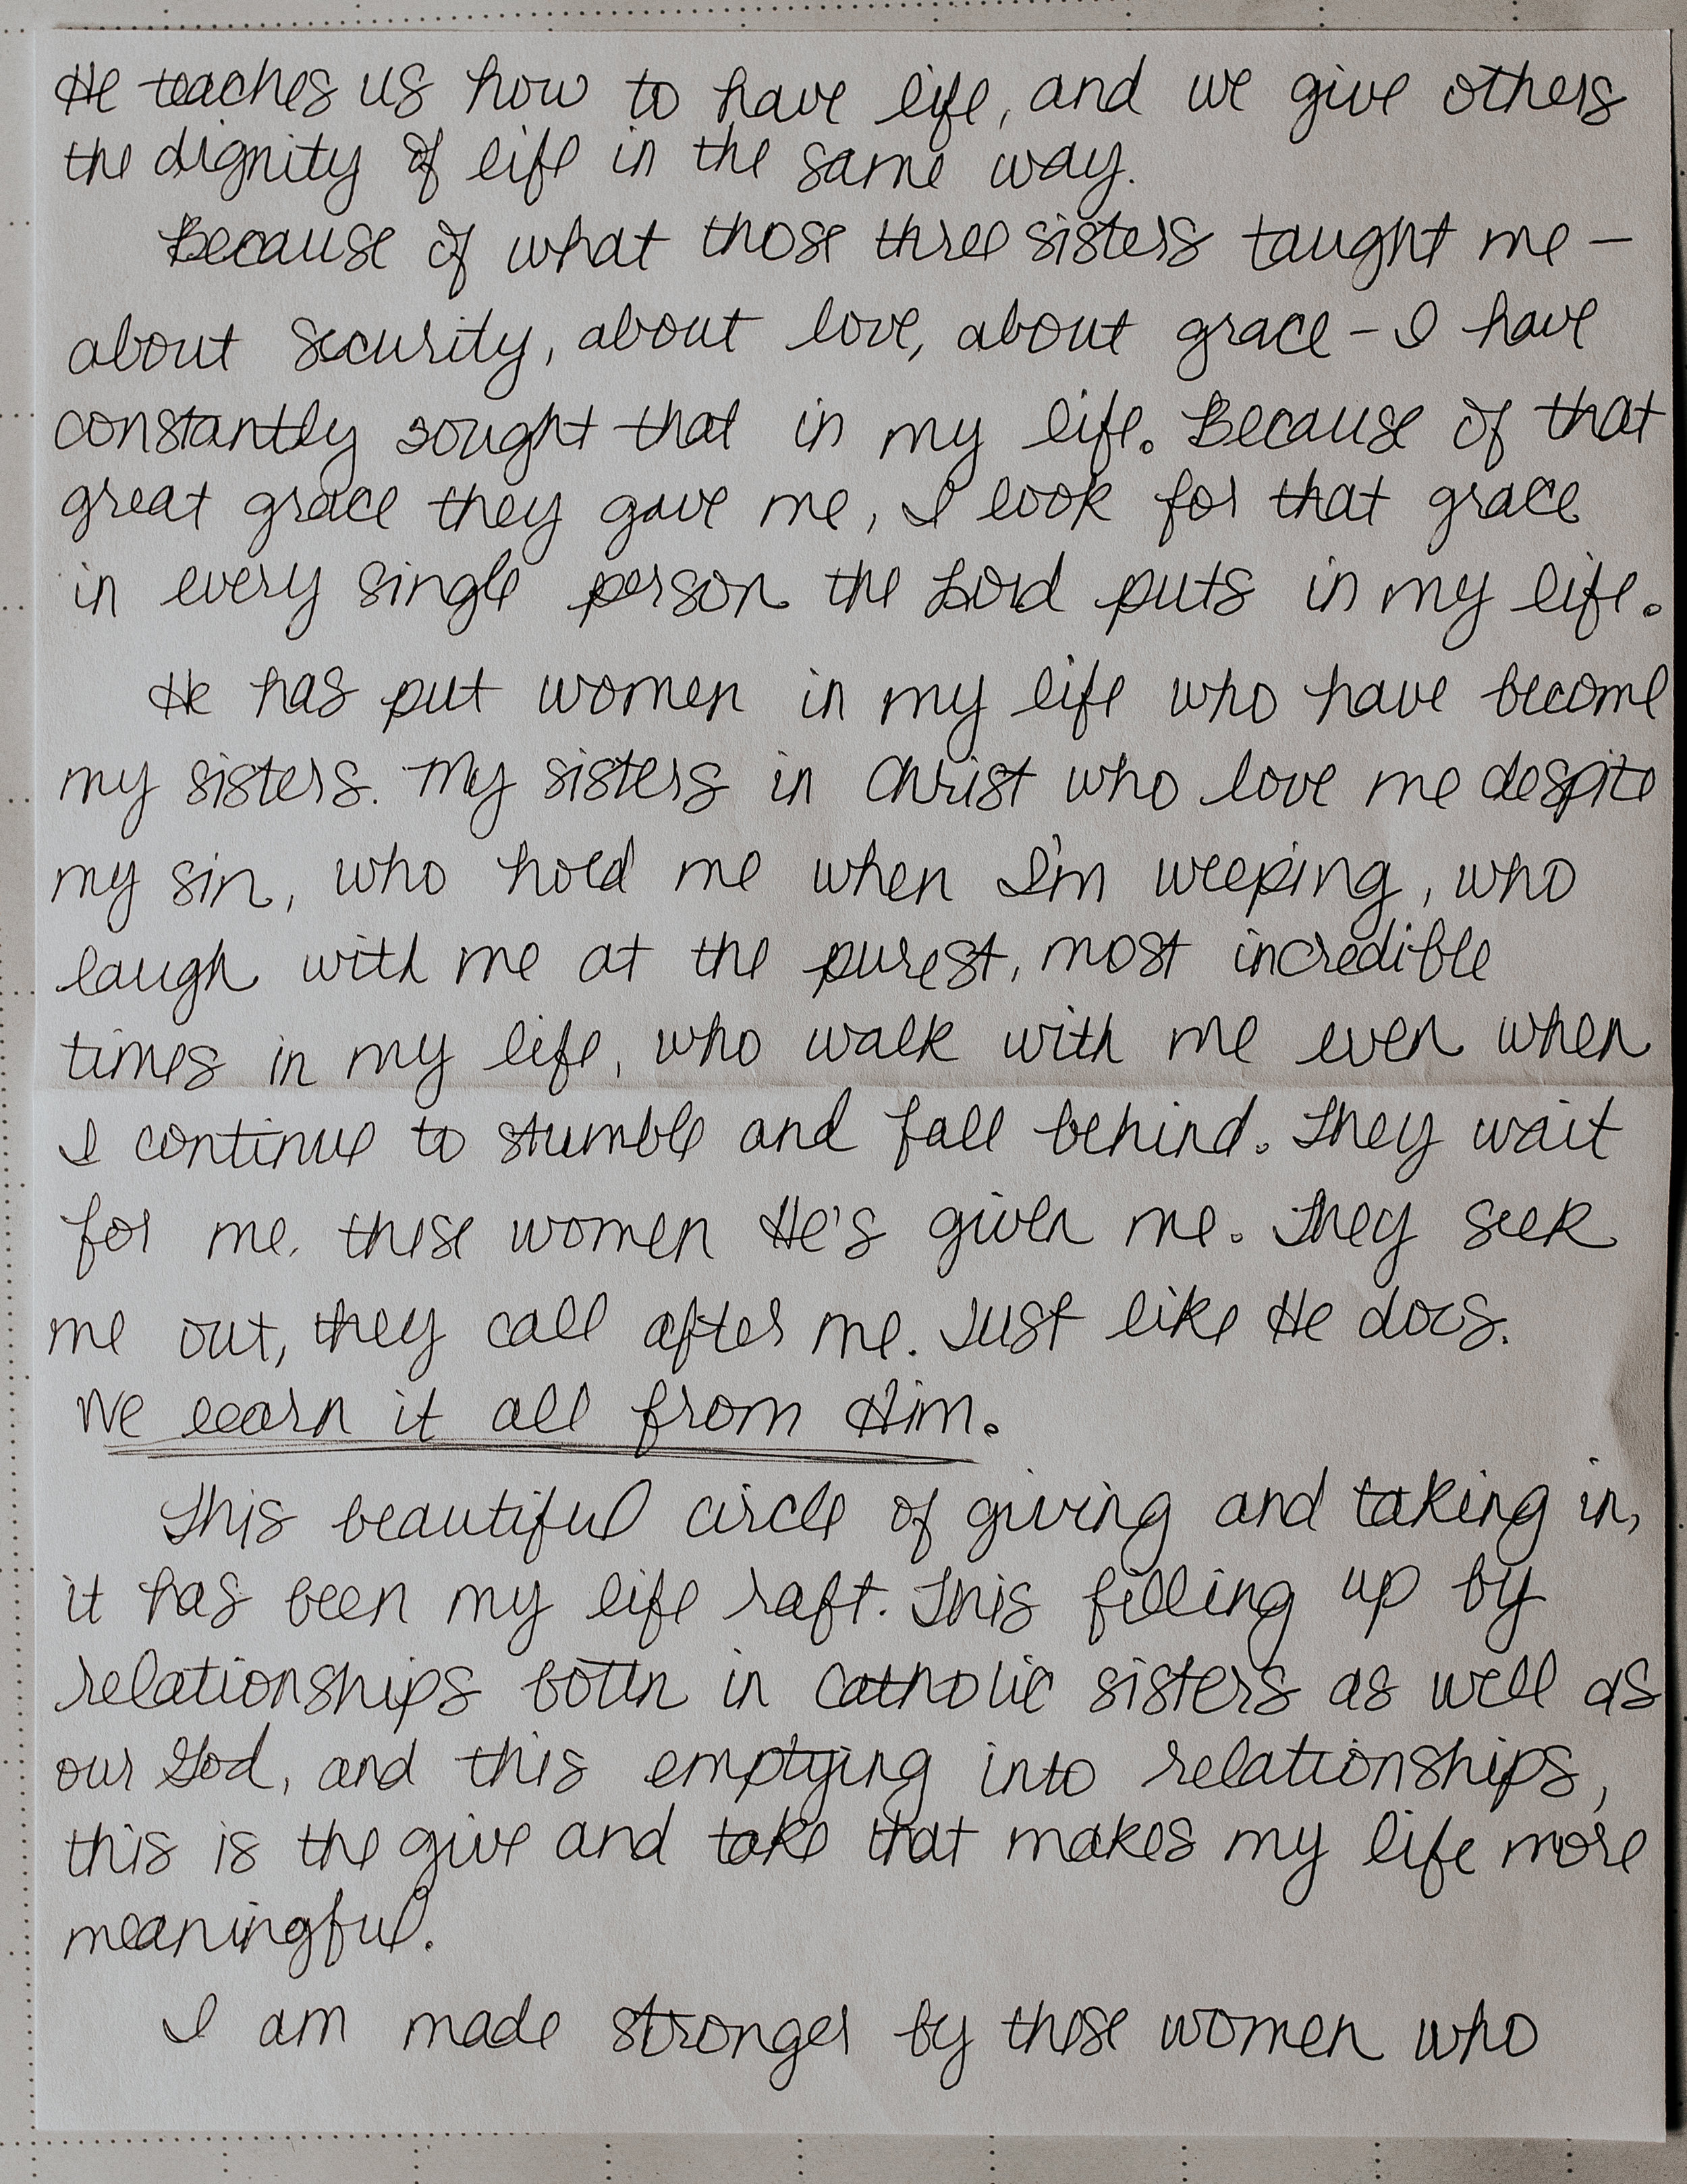 He teaches us how to have life, and we give others
the dignity of life in the same way.
Because of what those three sisters taught me —
about security, about love, about grace - I have
constantly sought that in my life. Because of that
great grace they gave me, I look for that grace
in every single person the Lord puts in my life.
He has put women in my life who have become
my sisters. My sisters in Christ who love me despite
my sin, who hold me when I'm weeping, who
laugh with me at the purest, most incredible
times in my life, who walk with me even when
I continue to stumble and fall behind. They wait
for me, these women He's given me. They seek
me out, they call after me. Just like He does.
We learn it all from Him.
This beautiful circle of giving and taking in,
it has been my life raft. This filling up by
relationships both in Catholic sisters as well as
our God, and this emptying into relationships,
this is the give and take that makes my life more
meaningful.
I am made stronger by these women who